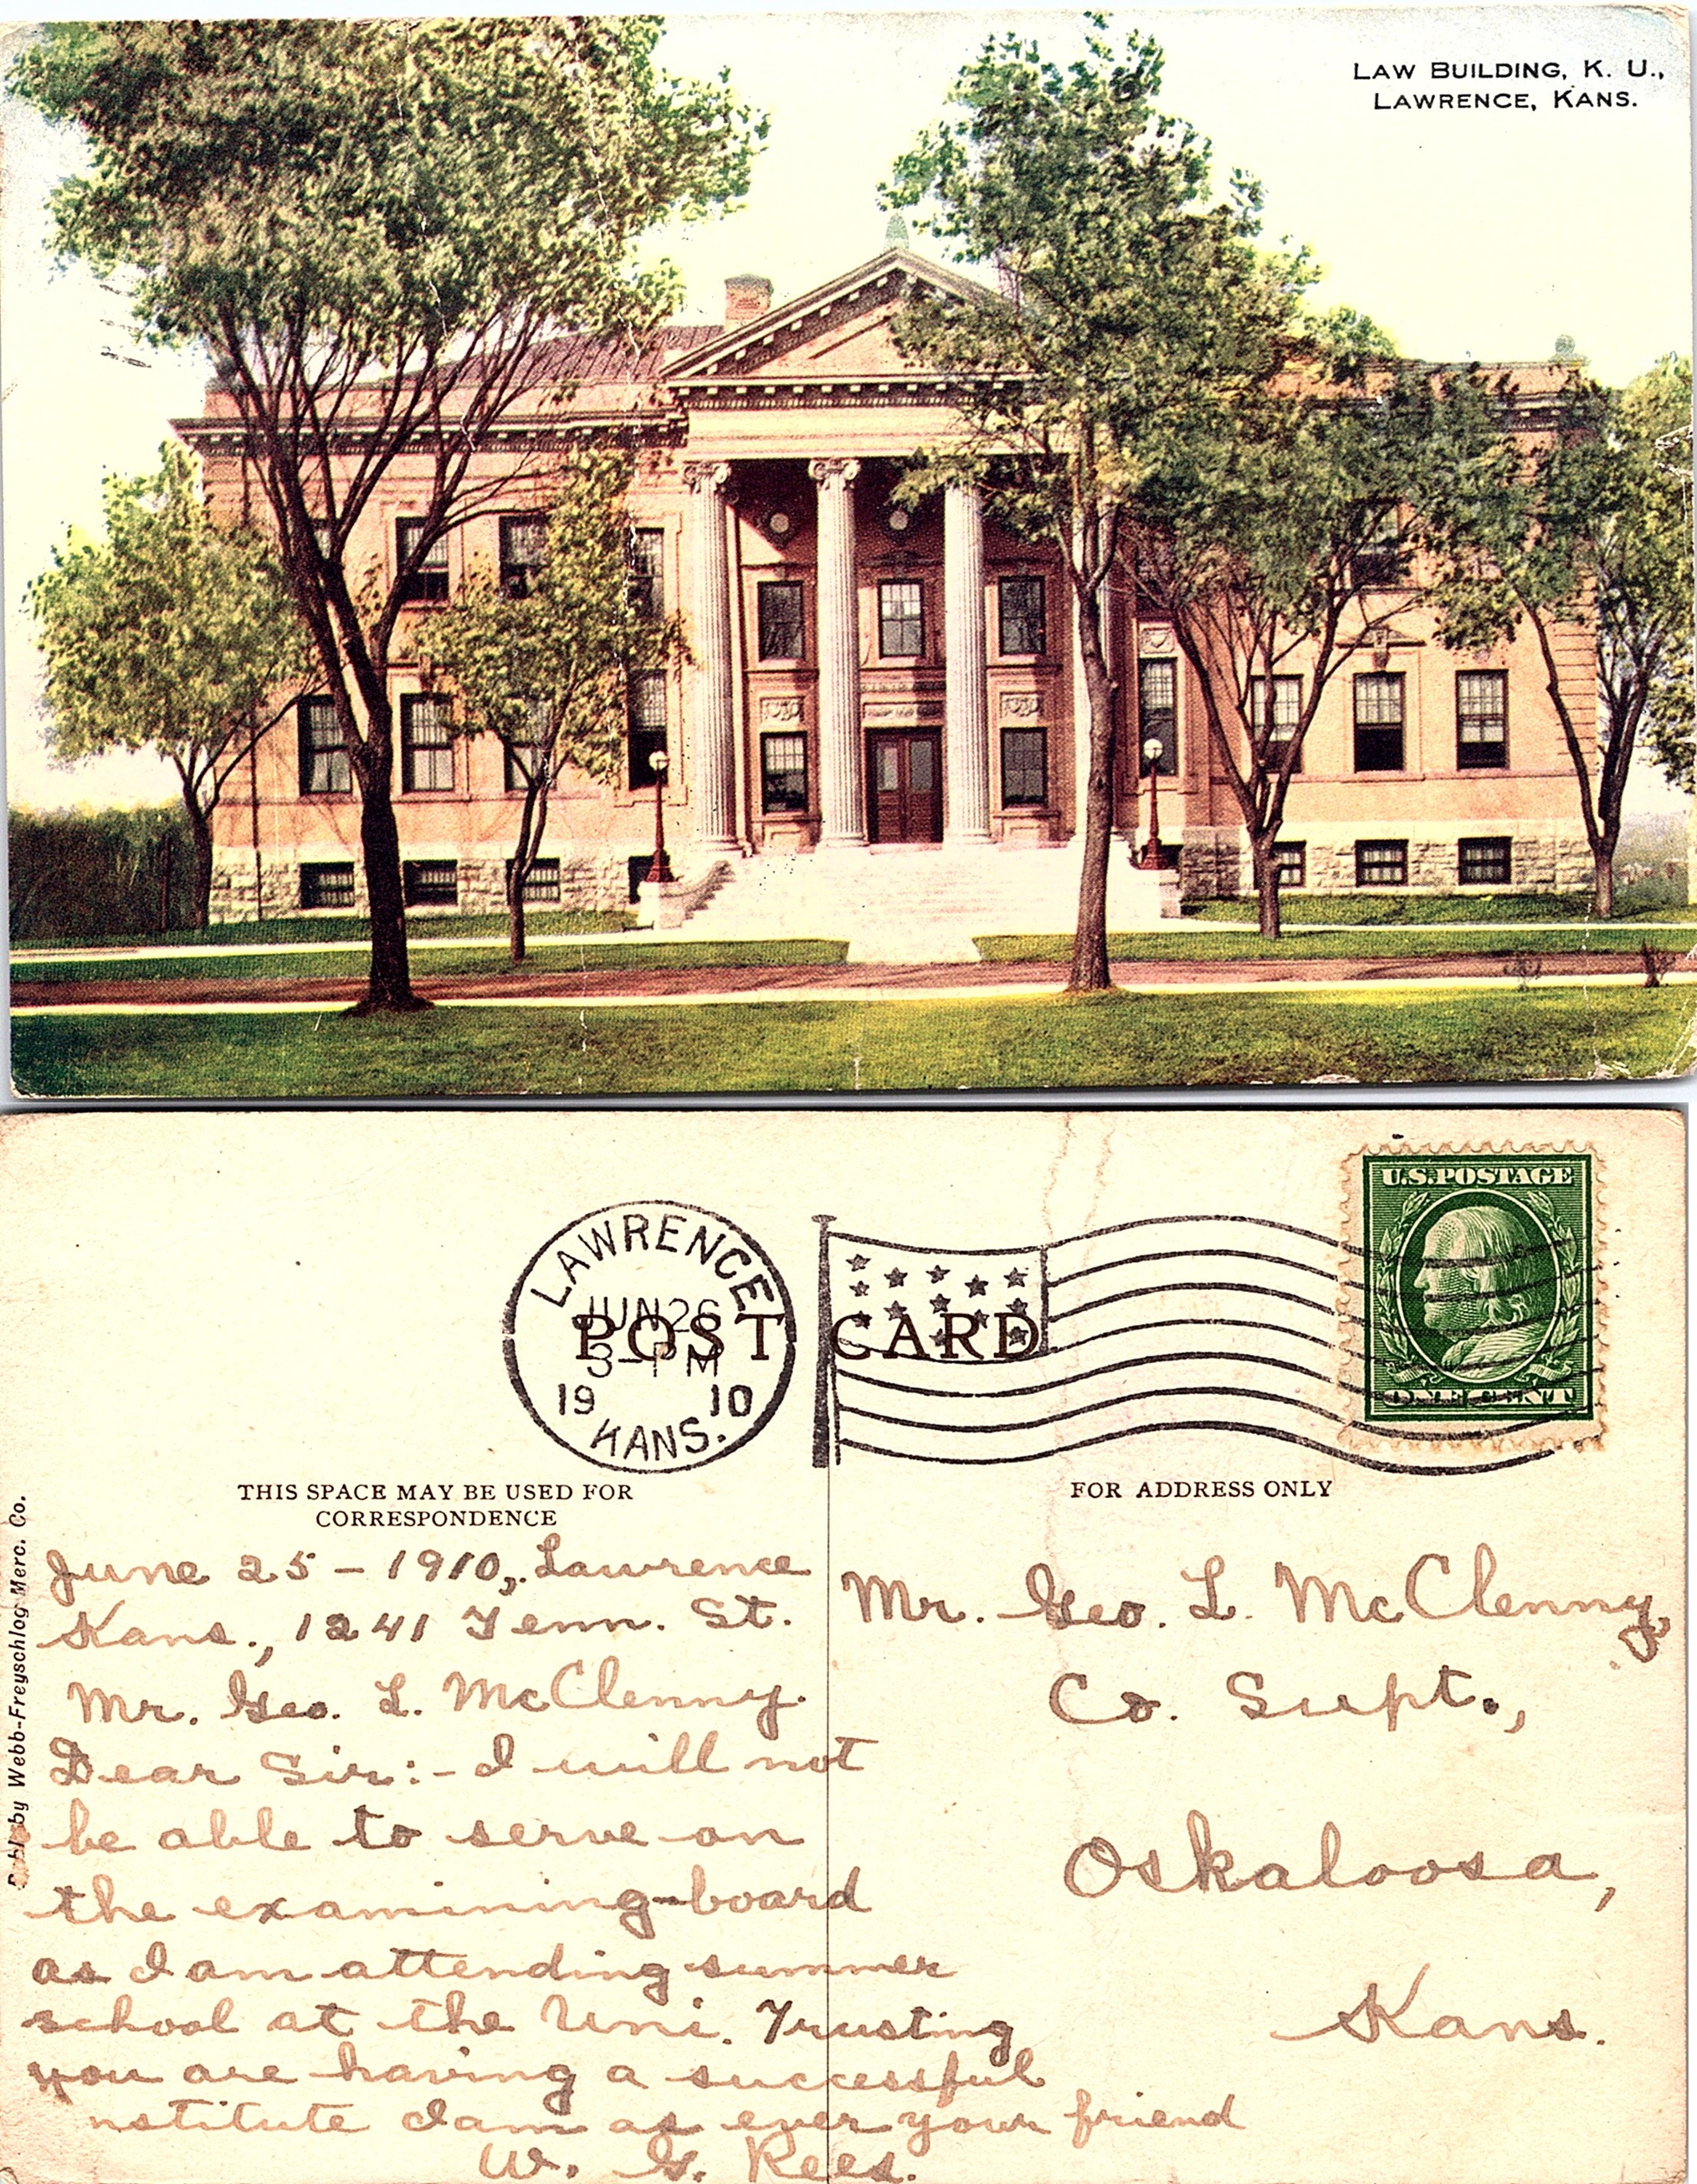 LAW BUILDING, K. U.,
LAWRENCE, KANS.
U.S. POSTAGE
ONE CENT
LAWRENCE
JUN 26
3-PM
19 10
KANS.
POST CARD
THIS SPACE MAY BE USED FOR
CORRESPONDENCE
FOR ADDRESS ONLY
Publ. by Webb-Freyschlog Merc. Co.
June 25 - 1910, Lawrence
Kans., 1241 Tenn. St.
Mr. Geo. L. McClenny.
Dear Sir:- I will not
be able to serve on
the examining-board
as I am attending summer
school at the Uni. Trusting
you are having a successful
nstitute I am as ever your friend
W. G. Rees.
Mr. Geo. L. McClenny,
Co. Supt.,
Oskaloosa,
Kans.